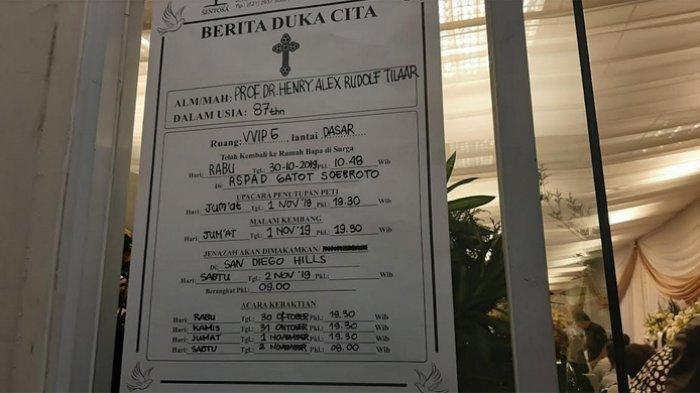 SENTOSA
BERITA DUKA CITA
ALM/MAH: PROF. DR. HENRY. ALEX RUDOLF TILAAR
DALAM USIA: 87 thn
Ruang: VVIP E, lantai DASAR
Telah Kembali ke Rumah Bapa di Surga
Hari: RABU Tgl.: 30-10-2019 Pkl.: 10.48 Wib
Di: RSPAD GATOT SOEBROTO
UPACARA PENUTUPAN PETI
Hari: JUM'AT Tgl.: 1 NOV '19 Pkl.: 19.30 Wib
MALAM KEMBANG
Hari: JUM'AT Tgl.: 1 NOV '19 Pkl.: 19.30 Wib
JENAZAH AKAN DIMAKAMKAN/
Di: SAN DIEGO HILLS
Hari: SABTU Tgl.: 2 NOV '19 Wib
Berangkat Pkl.: 09.00
ACARA KEBAKTIAN
Hari: RABU Tgl.: 30 OKTOBER Pkl.: 19.30 Wib
Hari: KAMIS Tgl.: 31 OKTOBER Pkl.: 19.30 Wib
Hari: JUMAT Tgl.: 1 NOVEMBER Pkl.: 19.30 Wib
Hari: SABTU Tgl.: 2 NOVEMBER Pkl.: 08.00 Wib